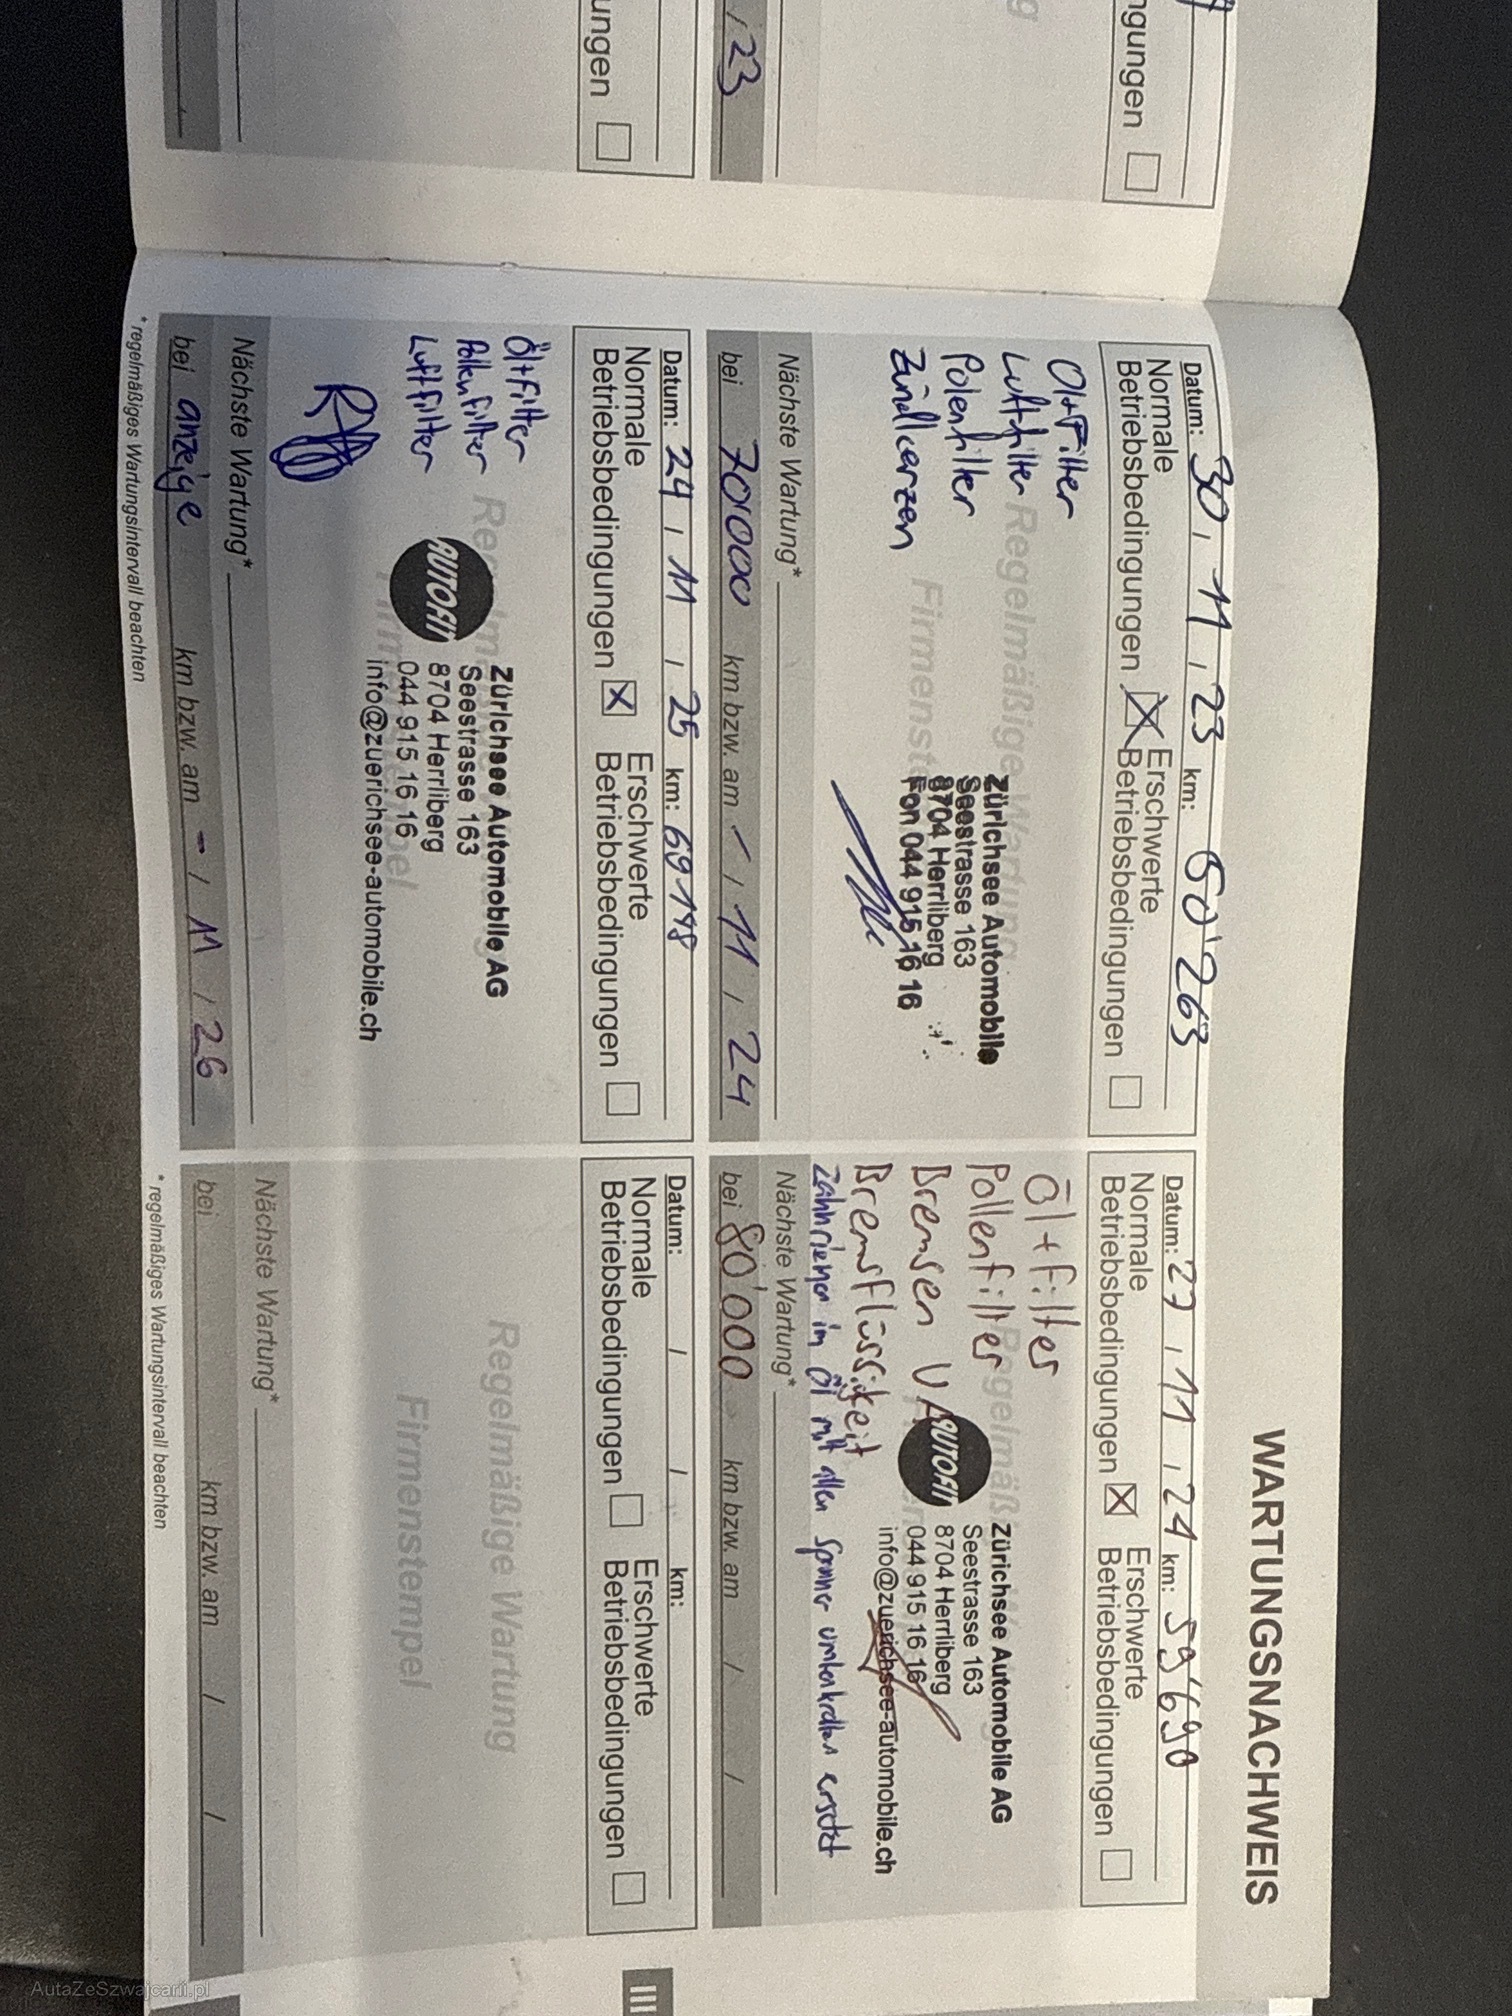 WARTUNGSNACHWEIS
Datum: 30 / 11 / 23 km: 50'263
Normale Betriebsbedingungen Erschwerte Betriebsbedingungen
Öl+Filter
Luftfilter
Polenfilter
Zündkerzen
Regelmäßige Wartung
Zürichsee Automobile
Seestrasse 163
8704 Herrliberg
Fon 044 915 16 16
Nächste Wartung*
bei 70'000 km bzw. am - / 11 / 24
Datum: 27 / 11 / 24 km: 59'690
Normale Betriebsbedingungen Erschwerte Betriebsbedingungen
Öl+Filter
Pollenfilter
Bremsen VA
Bremsflüssigkeit
AUTOFIT
Zürichsee Automobile AG
Seestrasse 163
8704 Herrliberg
044 915 16 16
info@zuerichsee-automobile.ch
Zahnriemen im Öl mit allen Spanner umlenkrollen ersetzt
Nächste Wartung*
bei 80'000 km bzw. am / /
Datum: 24 / 11 / 25 km: 69148
Normale Betriebsbedingungen Erschwerte Betriebsbedingungen
Öl+Filter
Pollenfilter
Luftfilter
Zürichsee Automobile AG
Seestrasse 163
8704 Herrliberg
044 915 16 16
info@zuerichsee-automobile.ch
Nächste Wartung*
bei anzeige km bzw. am - / 11 / 26
* regelmäßiges Wartungsintervall beachten
Datum: / / km:
Normale Betriebsbedingungen Erschwerte Betriebsbedingungen
Regelmäßige Wartung
Firmenstempel
Nächste Wartung*
bei km bzw. am / /
* regelmäßiges Wartungsintervall beachten
III
23
AutaZeSzwajcarii.pl